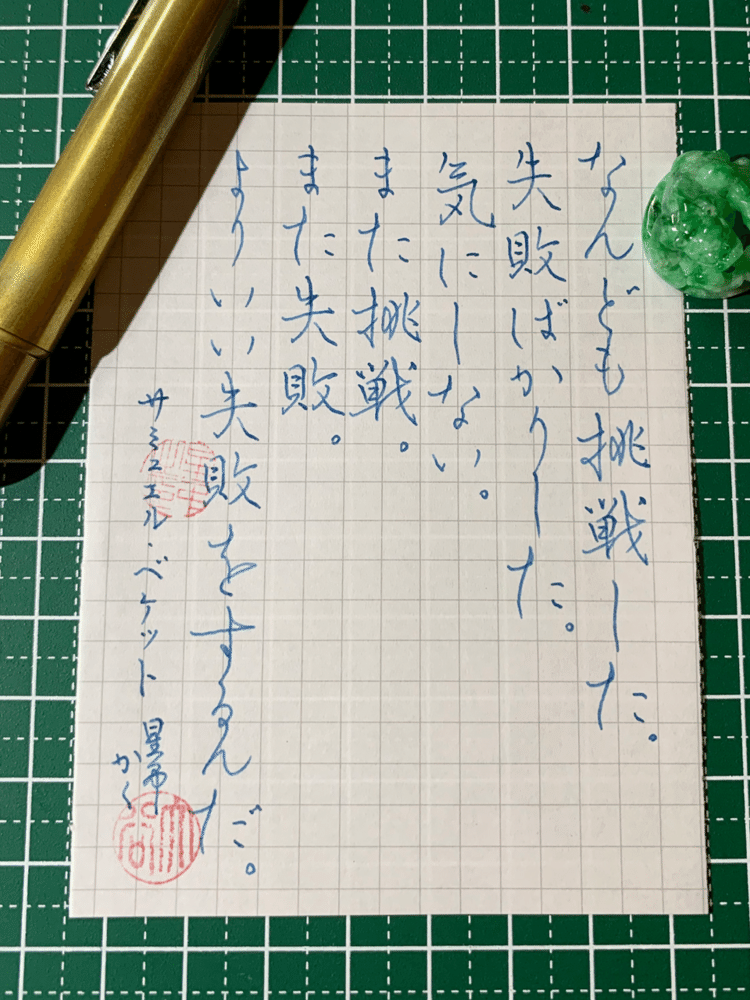 なんども挑戦した。
失敗ばかりした。
気にしない。
また挑戦。
また失敗。
よりいい失敗をするんだ。
サミュエル・ベケット
かく